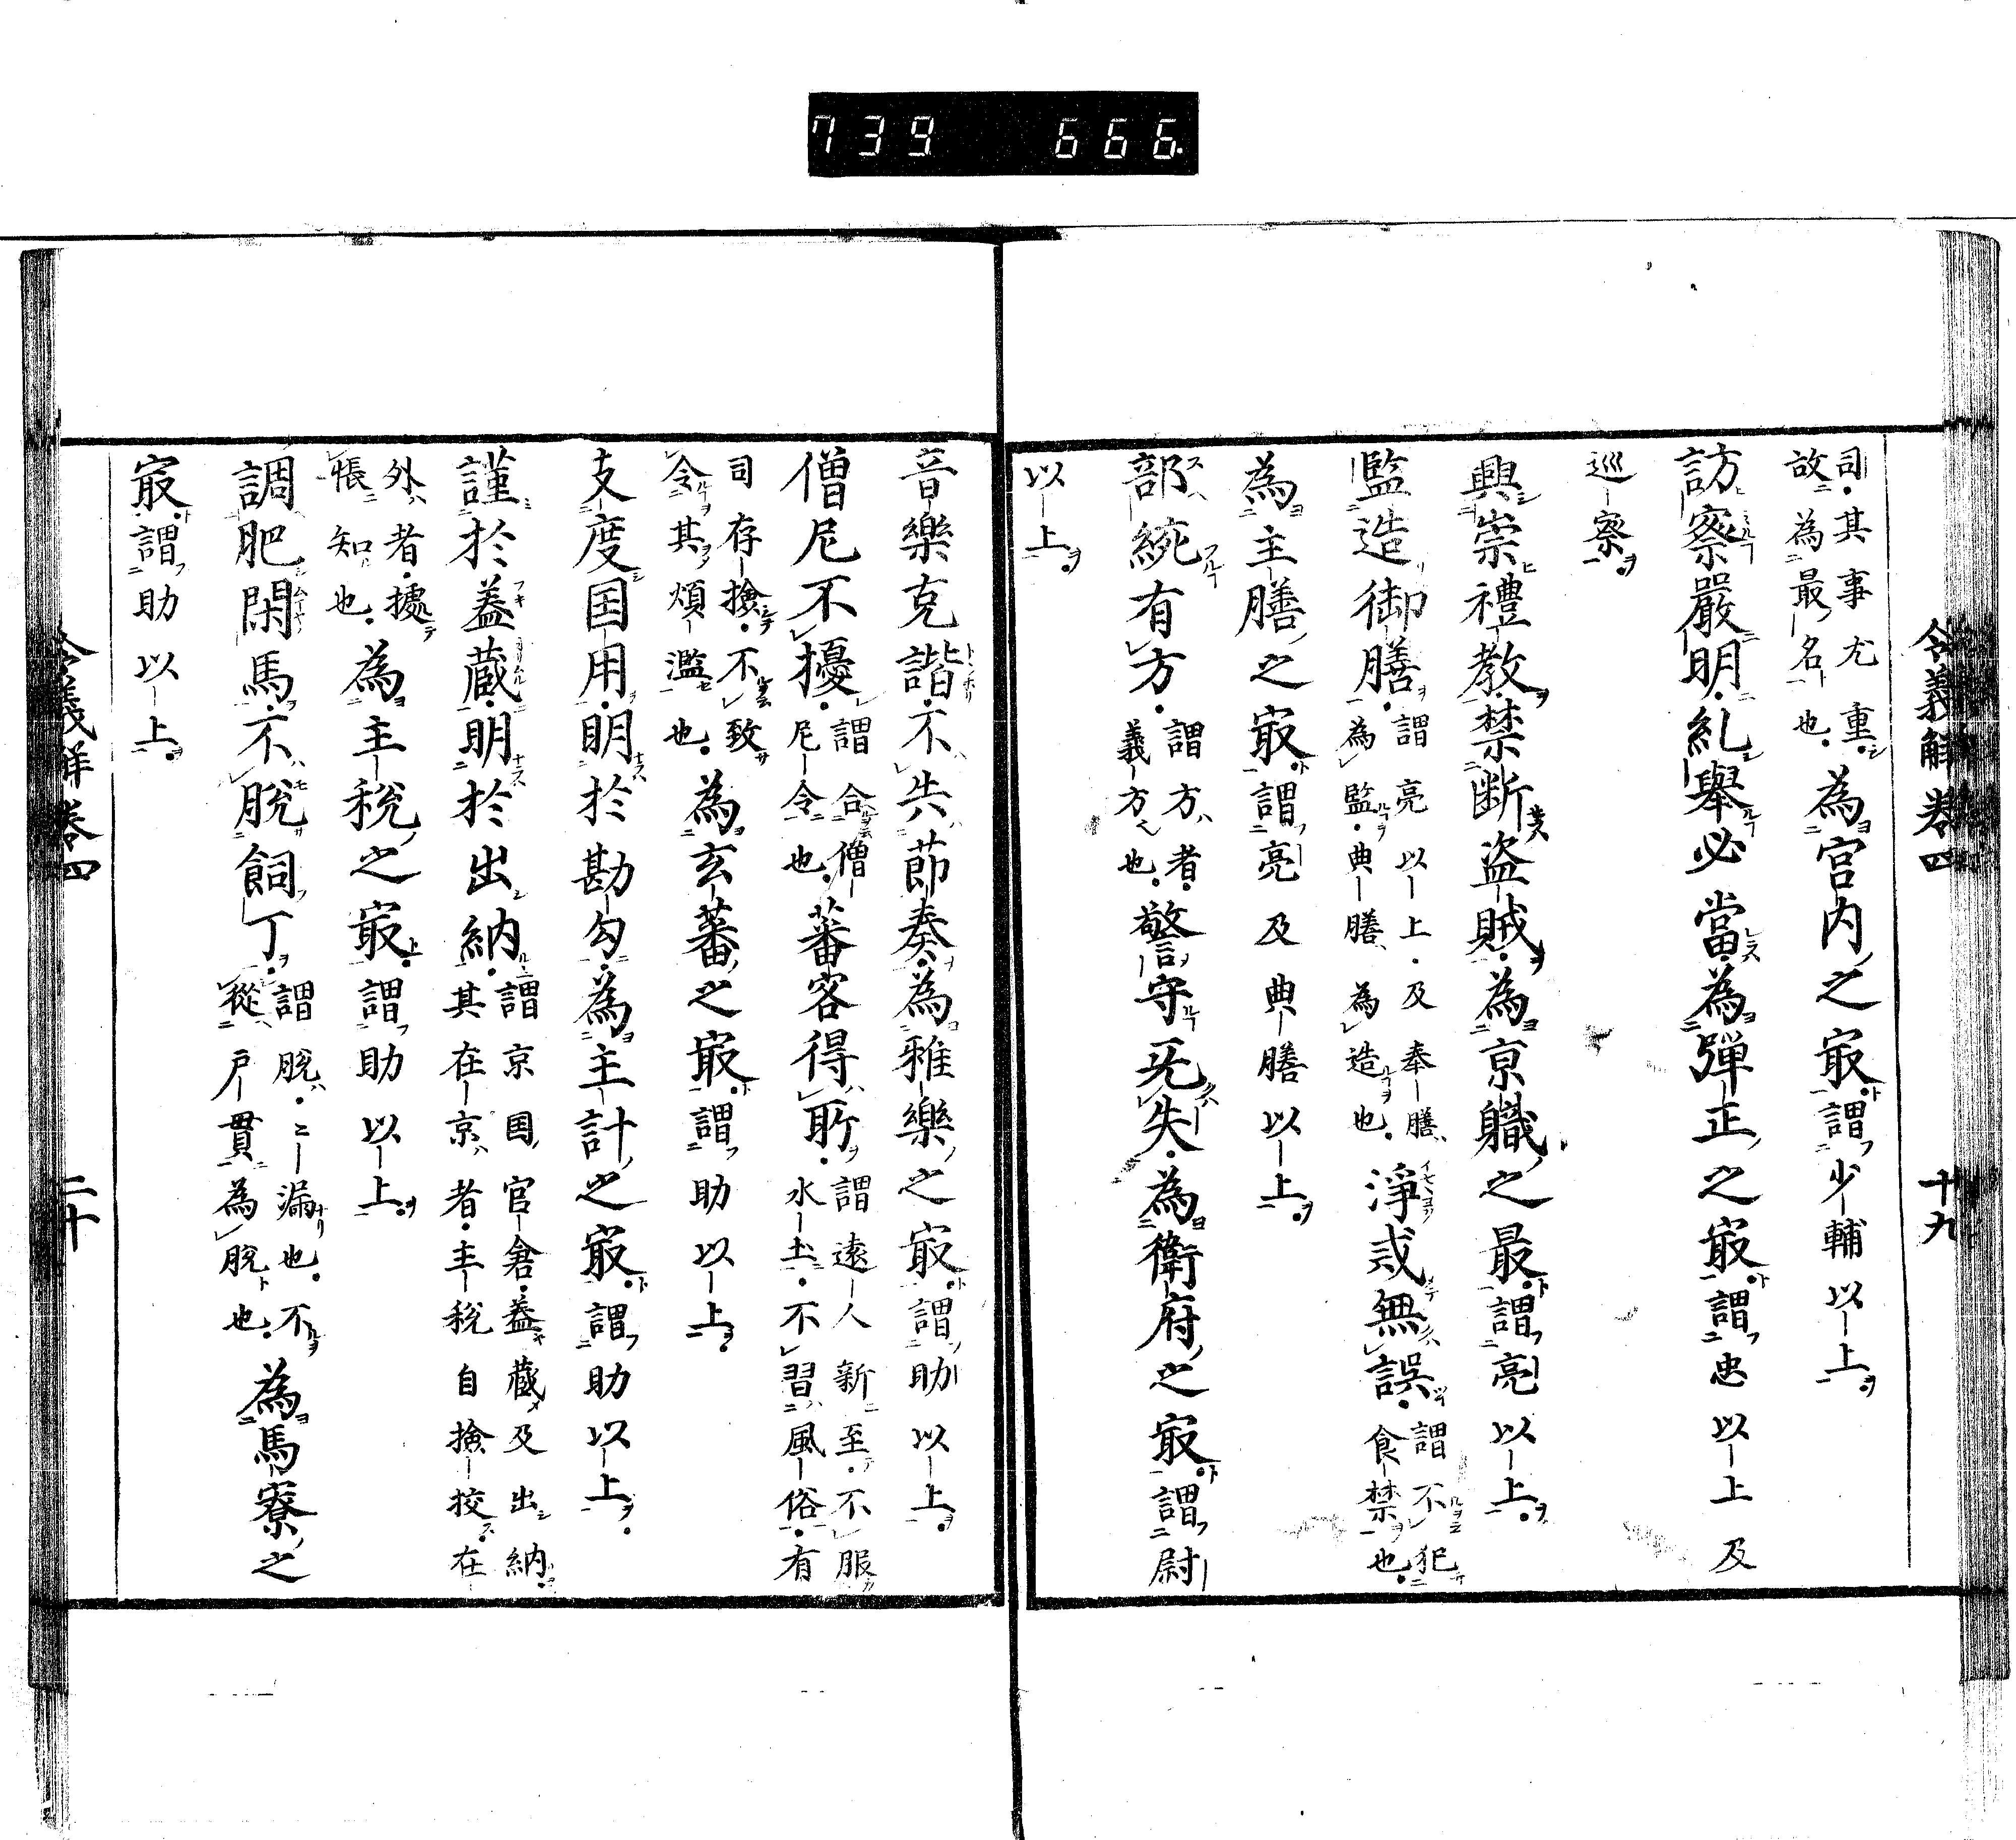 739 666.
令義解卷四 十九
司。其事尤重。故為最名也。為宮内之㝡謂少輔以上。
訪察嚴明。糺舉必當。為彈正之㝡。謂忠以上及
巡察。
興崇禮教。禁断盗賊。為京職之最。謂亮以上。
監造御膳。謂亮以上。及奉膳為監。典膳為造也。淨戒無誤。謂不犯食禁也。
為主膳之㝡。謂亮及典膳以上。
部統有方。謂方者。義方也。警守无失。為衛府之㝡。謂尉
以上。
音樂克諧。不失節奏。為雅樂之㝡。謂助以上。
僧尼不擾。謂合僧尼令也。蕃客得所。謂遠人新至。不服水土。不習風俗。有
司存撿。不致令其煩濫也。為玄蕃之㝡。謂助以上。
支度国用。明於勘勾。為主計之㝡。謂助以上。
謹於蓋蔵。明於出納。謂京国官倉。蓋蔵及出納。其在京者。主税自撿挍。在
外者。據帳知也。為主税之㝡。謂助以上。
調肥閑馬。不脱飼丁。謂脱。々漏也。不從戸貫為脱也。為馬寮之
㝡。謂助以上。
令義解卷四 二十